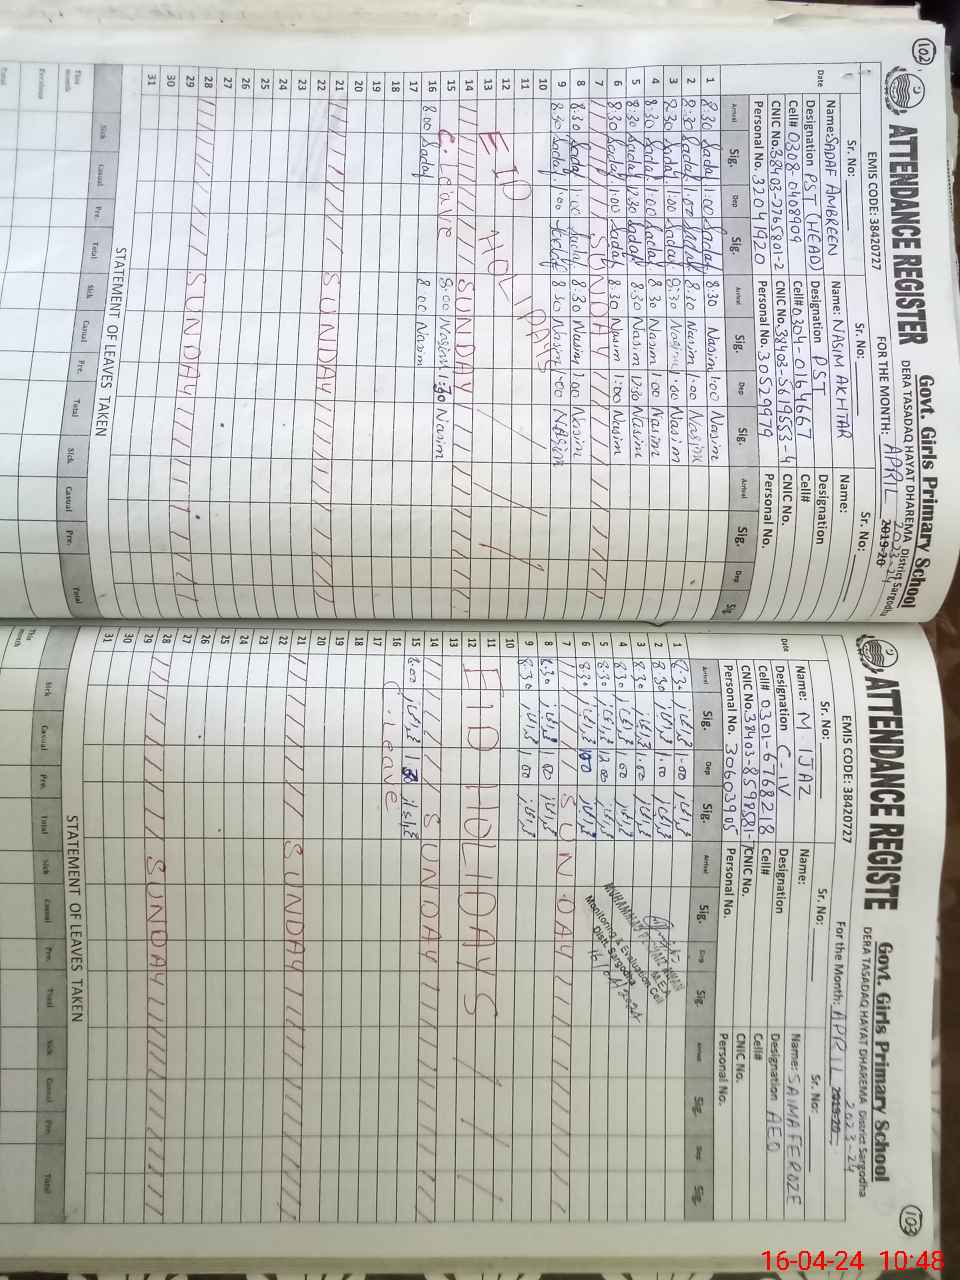 102
ATTENDANCE REGISTER
Govt. Girls Primary School
DERA TASADAQ HAYAT DHAREMA District Sargodha
EMIS CODE: 38420727
FOR THE MONTH: APRIL 2019-20 2023-24
Sr. No: Sr. No: Sr. No:
Name: SADAF AMBREEN Name: NASIM AKHTAR Name:
Designation PST (HEAD) Designation PST Designation
Cell# 0308-0408909 Cell# 0304-0164667 Cell#
CNIC No. 38403-2765801-2 CNIC No. 38403-5619553-4 CNIC No.
Personal No. 32041920 Personal No. 30529979 Personal No.
Date Arrival Sig. Dep Sig. Arrival Sig. Dep Sig. Arrival Sig. Dep Sig
1 8:30 Sadaf 1:00 Sadaf 8:30 Nasim 1:00 Nasim
2 8:30 Sadaf 1:00 Sadaf 8:30 Nasim 1:00 Nasim
3 8:30 Sadaf 1:00 Sadaf 8:30 Nasim 1:00 Nasim
4 8:30 Sadaf 1:00 Sadaf 8:30 Nasim 1:00 Nasim
5 8:30 Sadaf 12:30 Sadaf 8:30 Nasim 12:30 Nasim
6 8:30 Sadaf 1:00 Sadaf 8:30 Nasim 1:00 Nasim
7 SUNDAY
8 8:30 Sadaf 1:00 Sadaf 8:30 Nasim 1:00 Nasim
9 8:30 Sadaf 1:00 Sadaf 8:30 Nasim 1:00 Nasim
10
11 EID HOLIDAYS
12
13
14 SUNDAY
15 C. Leave 8:00 Nasim 1:30 Nasim
16 8:00 Sadaf 8:00 Nasim
17
18
19
20
21 SUNDAY
22
23
24
25
26
27
28 SUNDAY
29
30
31
STATEMENT OF LEAVES TAKEN
Sick Casual Pre. Total Sick Casual Pre. Total Sick Casual Pre. Total
This month
Previous
Total
103
ATTENDANCE REGISTE
Govt. Girls Primary School
DERA TASADAQ HAYAT DHAREMA District Sargodha
EMIS CODE: 38420727
For the Month: APRIL 2019-20 2023-24
Sr. No: Sr. No: Sr. No:
Name: M IJAZ Name: Name: SAIMA FEROZE
Designation C-IV Designation Designation AEO
Cell# 0301-6768218 Cell# Cell#
CNIC No. 38403-8598581-7 CNIC No. CNIC No.
Personal No. 30603905 Personal No. Personal No.
Date Arrival Sig. Dep Sig. Arrival Sig. Dep Sig. Arrival Sig. Dep Sig.
1 8:30 1:00
2 8:30 1:00
3 8:30 1:00
4 8:30 1:00
5 8:30 12:00
6 8:30 1:00
7 SUNDAY
8 8:30 1:00
9 8:30 1:00
10
11
12 EID HOLIDAYS
13
14 SUNDAY
15 8:00 1:30
16 C. Leave
17
18
19
20
21 SUNDAY
22
23
24
25
26
27
28 SUNDAY
29
30
31
MUHAMMAD AWAN
M.E.A
Monitoring & Evaluation Cell
Distt. Sargodha
16/04/2024
STATEMENT OF LEAVES TAKEN
Sick Casual Pre. Total Sick Casual Pre. Total Sick Casual Pre. Total
This month
16-04-24 10:48